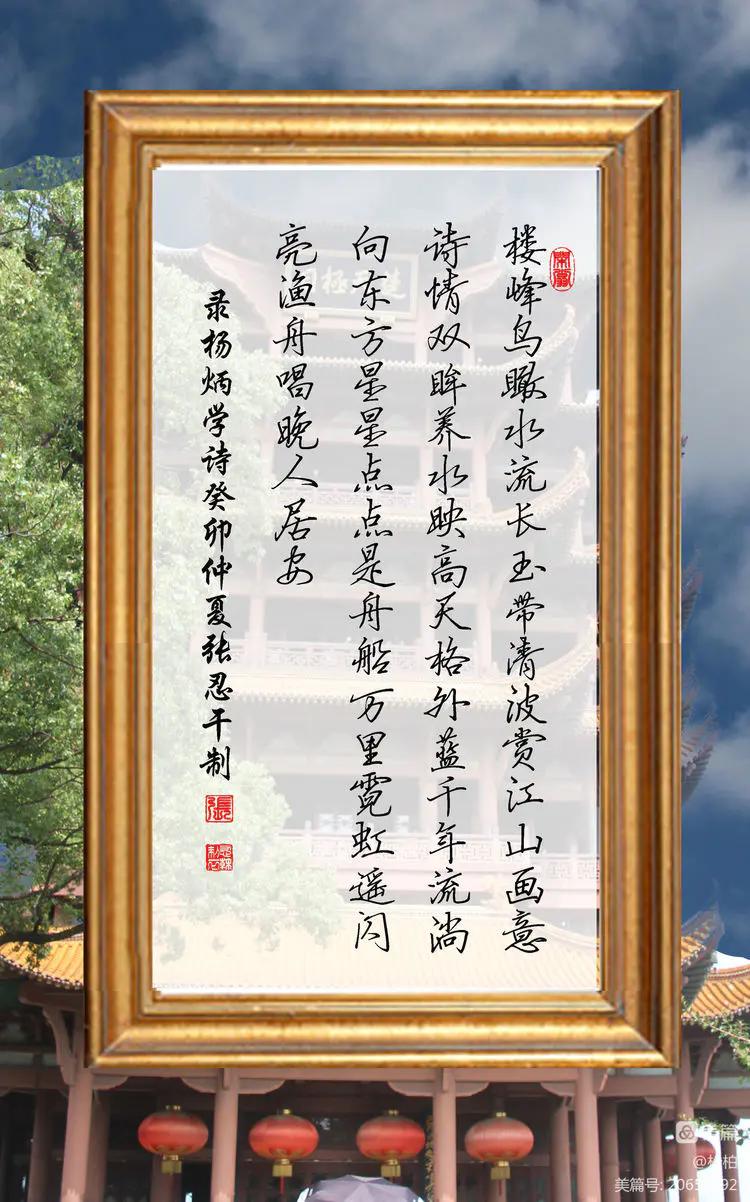 楼峰鸟瞰水流长玉带清波赏江山画意
诗情双眸养水映高天格外蓝千年流淌
向东方星星点点是舟船万里霓虹遥闪
亮渔舟唱晚人居安
录杨炳学诗癸卯仲夏张忍千制
張
美篇
美篇号: